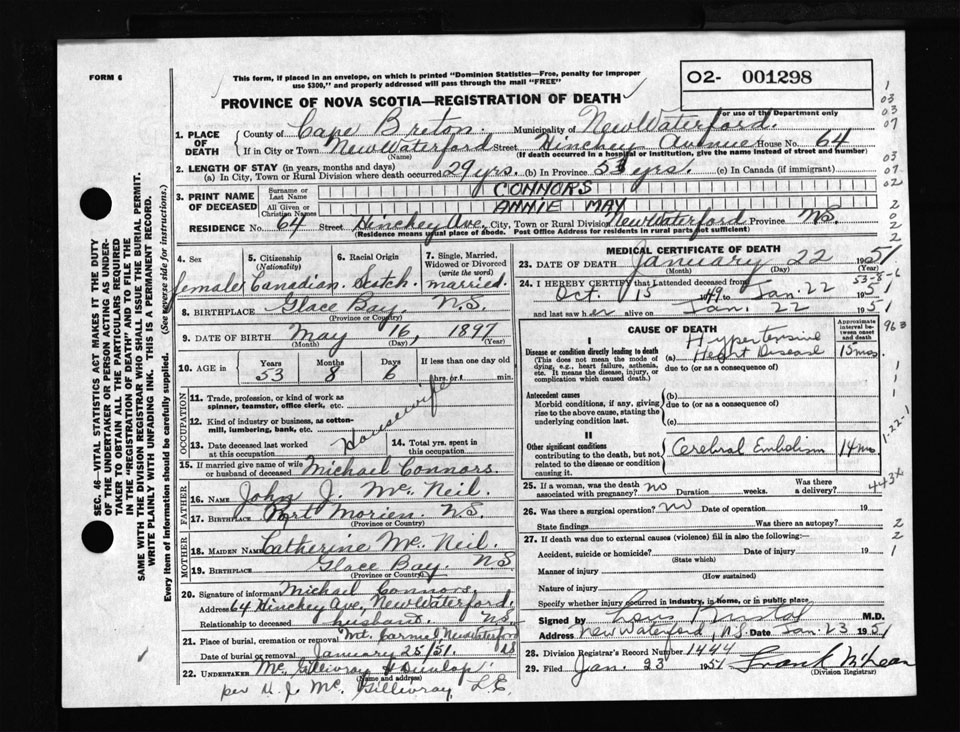 FORM 6
This form, if placed in an envelope, on which is printed "Dominion Statistics—Free, penalty for improper
use $300," and properly addressed will pass through the mail "FREE"
O2- 001298
PROVINCE OF NOVA SCOTIA—REGISTRATION OF DEATH
For use of the Department only
1. PLACE OF DEATH
County of Cape Breton. Municipality of New Waterford.
If in City or Town New Waterford Street Hinchey Avenue House No. 64
(Name) (If death occurred in a hospital or institution, give the name instead of street and number)
2. LENGTH OF STAY (in years, months and days)
(a) In City, Town or Rural Division where death occurred 29 yrs. (b) In Province 53 yrs. (c) In Canada (if immigrant)
3. PRINT NAME OF DECEASED
Surname or Last Name CONNORS
All Given or Christian Names ANNIE MAY
RESIDENCE No. 64 Street Hinchey Ave. City, Town or Rural Division New Waterford Province N.S.
(Residence means usual place of abode. Post Office Address for residents in rural parts not sufficient)
4. Sex
female
5. Citizenship
(Nationality)
Canadian
6. Racial Origin
Scotch
7. Single, Married, Widowed or Divorced
(write the word)
married.
8. BIRTHPLACE Glace Bay N.S.
(Province or Country)
9. DATE OF BIRTH May 16, 1897
(Month) (Day) (Year)
10. AGE in Years Months Days If less than one day
53 8 6 hrs. or min.
OCCUPATION
11. Trade, profession, or kind of work as
spinner, teamster, office clerk, etc.
12. Kind of industry or business, as cotton-
mill, lumbering, bank, etc.
Housewife
13. Date deceased last worked
at this occupation
14. Total yrs. spent in
this occupation
15. If married give name of wife
or husband of deceased Michael Connors.
FATHER
16. NAME John J. Mc. Neil
17. BIRTHPLACE Port Morien N.S.
(Province or Country)
MOTHER
18. MAIDEN NAME Catherine Mc. Neil.
19. BIRTHPLACE Glace Bay. N.S
(Province or Country)
20. Signature of informant Michael Connors
Address 64 Hinchey Ave, New Waterford.
Relationship to deceased husband. N.S.
21. Place of burial, cremation or removal Mt. Carmel New Waterford
Date of burial or removal January 25/51. N.S
22. UNDERTAKER Mc. Gillivray & Dunlop
(Name and address)
per H. J. Mc. Gillivray, L.E.
MEDICAL CERTIFICATE OF DEATH
23. DATE OF DEATH January 22 1951
(Month) (Day) (Year)
24. I HEREBY CERTIFY that I attended deceased from
Oct. 15 1949 to Jan. 22 1951
and last saw her alive on Jan. 22 1951
CAUSE OF DEATH
Approximate interval between onset and death
I
Disease or condition directly leading to death
(This does not mean the mode of
dying, e.g., heart failure, asthenia,
etc. It means the disease, injury, or
complication which caused death.)
(a) Hypertensive
Heart Disease 15 mos.
due to (or as a consequence of)
Antecedent causes
Morbid conditions, if any, giving
rise to the above cause, stating the
underlying condition last.
(b)
due to (or as a consequence of)
(c)
II
Other significant conditions
contributing to the death, but not
related to the disease or condition
causing it.
Cerebral Embolism 14 mo
25. If a woman, was the death
associated with pregnancy? no Duration weeks. Was there a delivery?
26. Was there a surgical operation? no Date of operation 19
State findings Was there an autopsy?
27. If death was due to external causes (violence) fill in also the following:—
Accident, suicide or homicide? Date of injury 19
(State which)
Manner of injury
(How sustained)
Nature of injury
Specify whether injury occurred in industry, in home, or in public place
Signed by M.D.
Address New Waterford, N.S. Date Jan. 23 1951
28. Division Registrar's Record Number 1444
29. Filed Jan. 23 1951 Frank McLean
(Division Registrar)
SEC. 46—VITAL STATISTICS ACT MAKES IT THE DUTY
OF THE UNDERTAKER OR PERSON ACTING AS UNDER-
TAKER TO OBTAIN ALL THE PARTICULARS REQUIRED
IN THE "REGISTRATION OF DEATH" AND TO FILE THE
SAME WITH THE DIVISION REGISTRAR WHO SHALL ISSUE THE BURIAL PERMIT.
WRITE PLAINLY WITH UNFADING INK. THIS IS A PERMANENT RECORD.
Every item of information should be carefully supplied. (See reverse side for instructions.)
1
03
03
07
03
07
02
2
0
2
2
53-8-6
963
1
1
1
1-22-1
443X
2
2
1